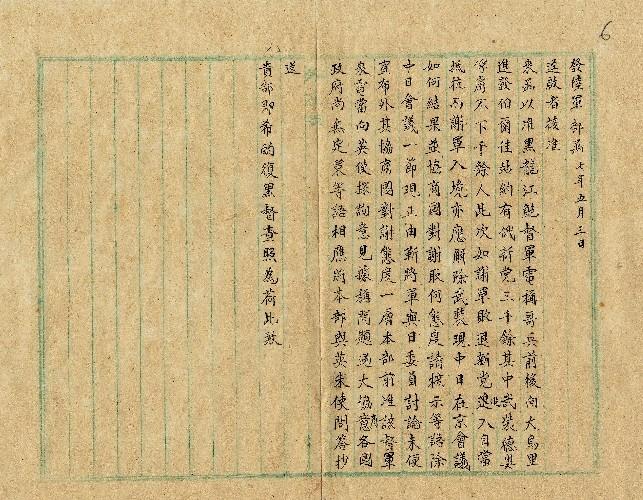 6
發陸軍部函 七年五月三日
逕啟者接准
來函以准黑龍江鮑督軍電稱哥兵前後向大烏里
進發伯爾佳站約有俄新党三千餘其中武裝德奧
俘虜不下千餘人此次如謝軍敗退新党進入自當
抵拒乃謝軍入境亦應解除武裝現中日在京會議
如何結果並協商國對謝取何態度請核示等語除
中日會議一節現正由靳將軍與日委員討論未便
宣布外其協商國對謝態度一層本部前准該督軍
來電當向英使探詢意見據稱問題過大協商各國
政府尚無定策等語相應將本部與英朱使問答抄
送
貴部即希酌復黑督查照為荷此致